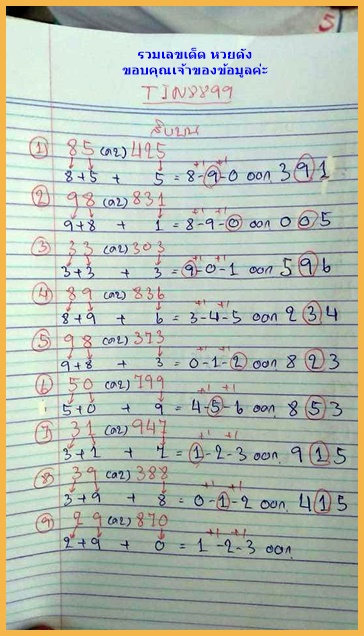 5
รวมเลขเด็ด หวยดัง
ขอบคุณเจ้าของข้อมูลค่ะ
TIN8899
สิบบน
① 85 (ล2) 425
8+5 + 5 = 8-9-0 ออก 391
+1 +1
② 98 (ล2) 831
9+8 + 1 = 8-9-0 ออก 005
+1 +1
③ 33 (ล2) 303
3+3 + 3 = 9-0-1 ออก 596
+1 +1
④ 89 (ล2) 836
8+9 + 6 = 3-4-5 ออก 234
+1 +1
⑤ 98 (ล2) 373
9+8 + 3 = 0-1-2 ออก 823
+1 +1
⑥ 50 (ล2) 799
5+0 + 9 = 4-5-6 ออก 853
+1 +1
⑦ 31 (ล2) 947
3+1 + 7 = 1-2-3 ออก 915
+1 +1
⑧ 39 (ล2) 388
3+9 + 8 = 0-1-2 ออก 415
+1 +1
⑨ 29 (ล2) 870
2+9 + 0 = 1-2-3 ออก
+1 +1